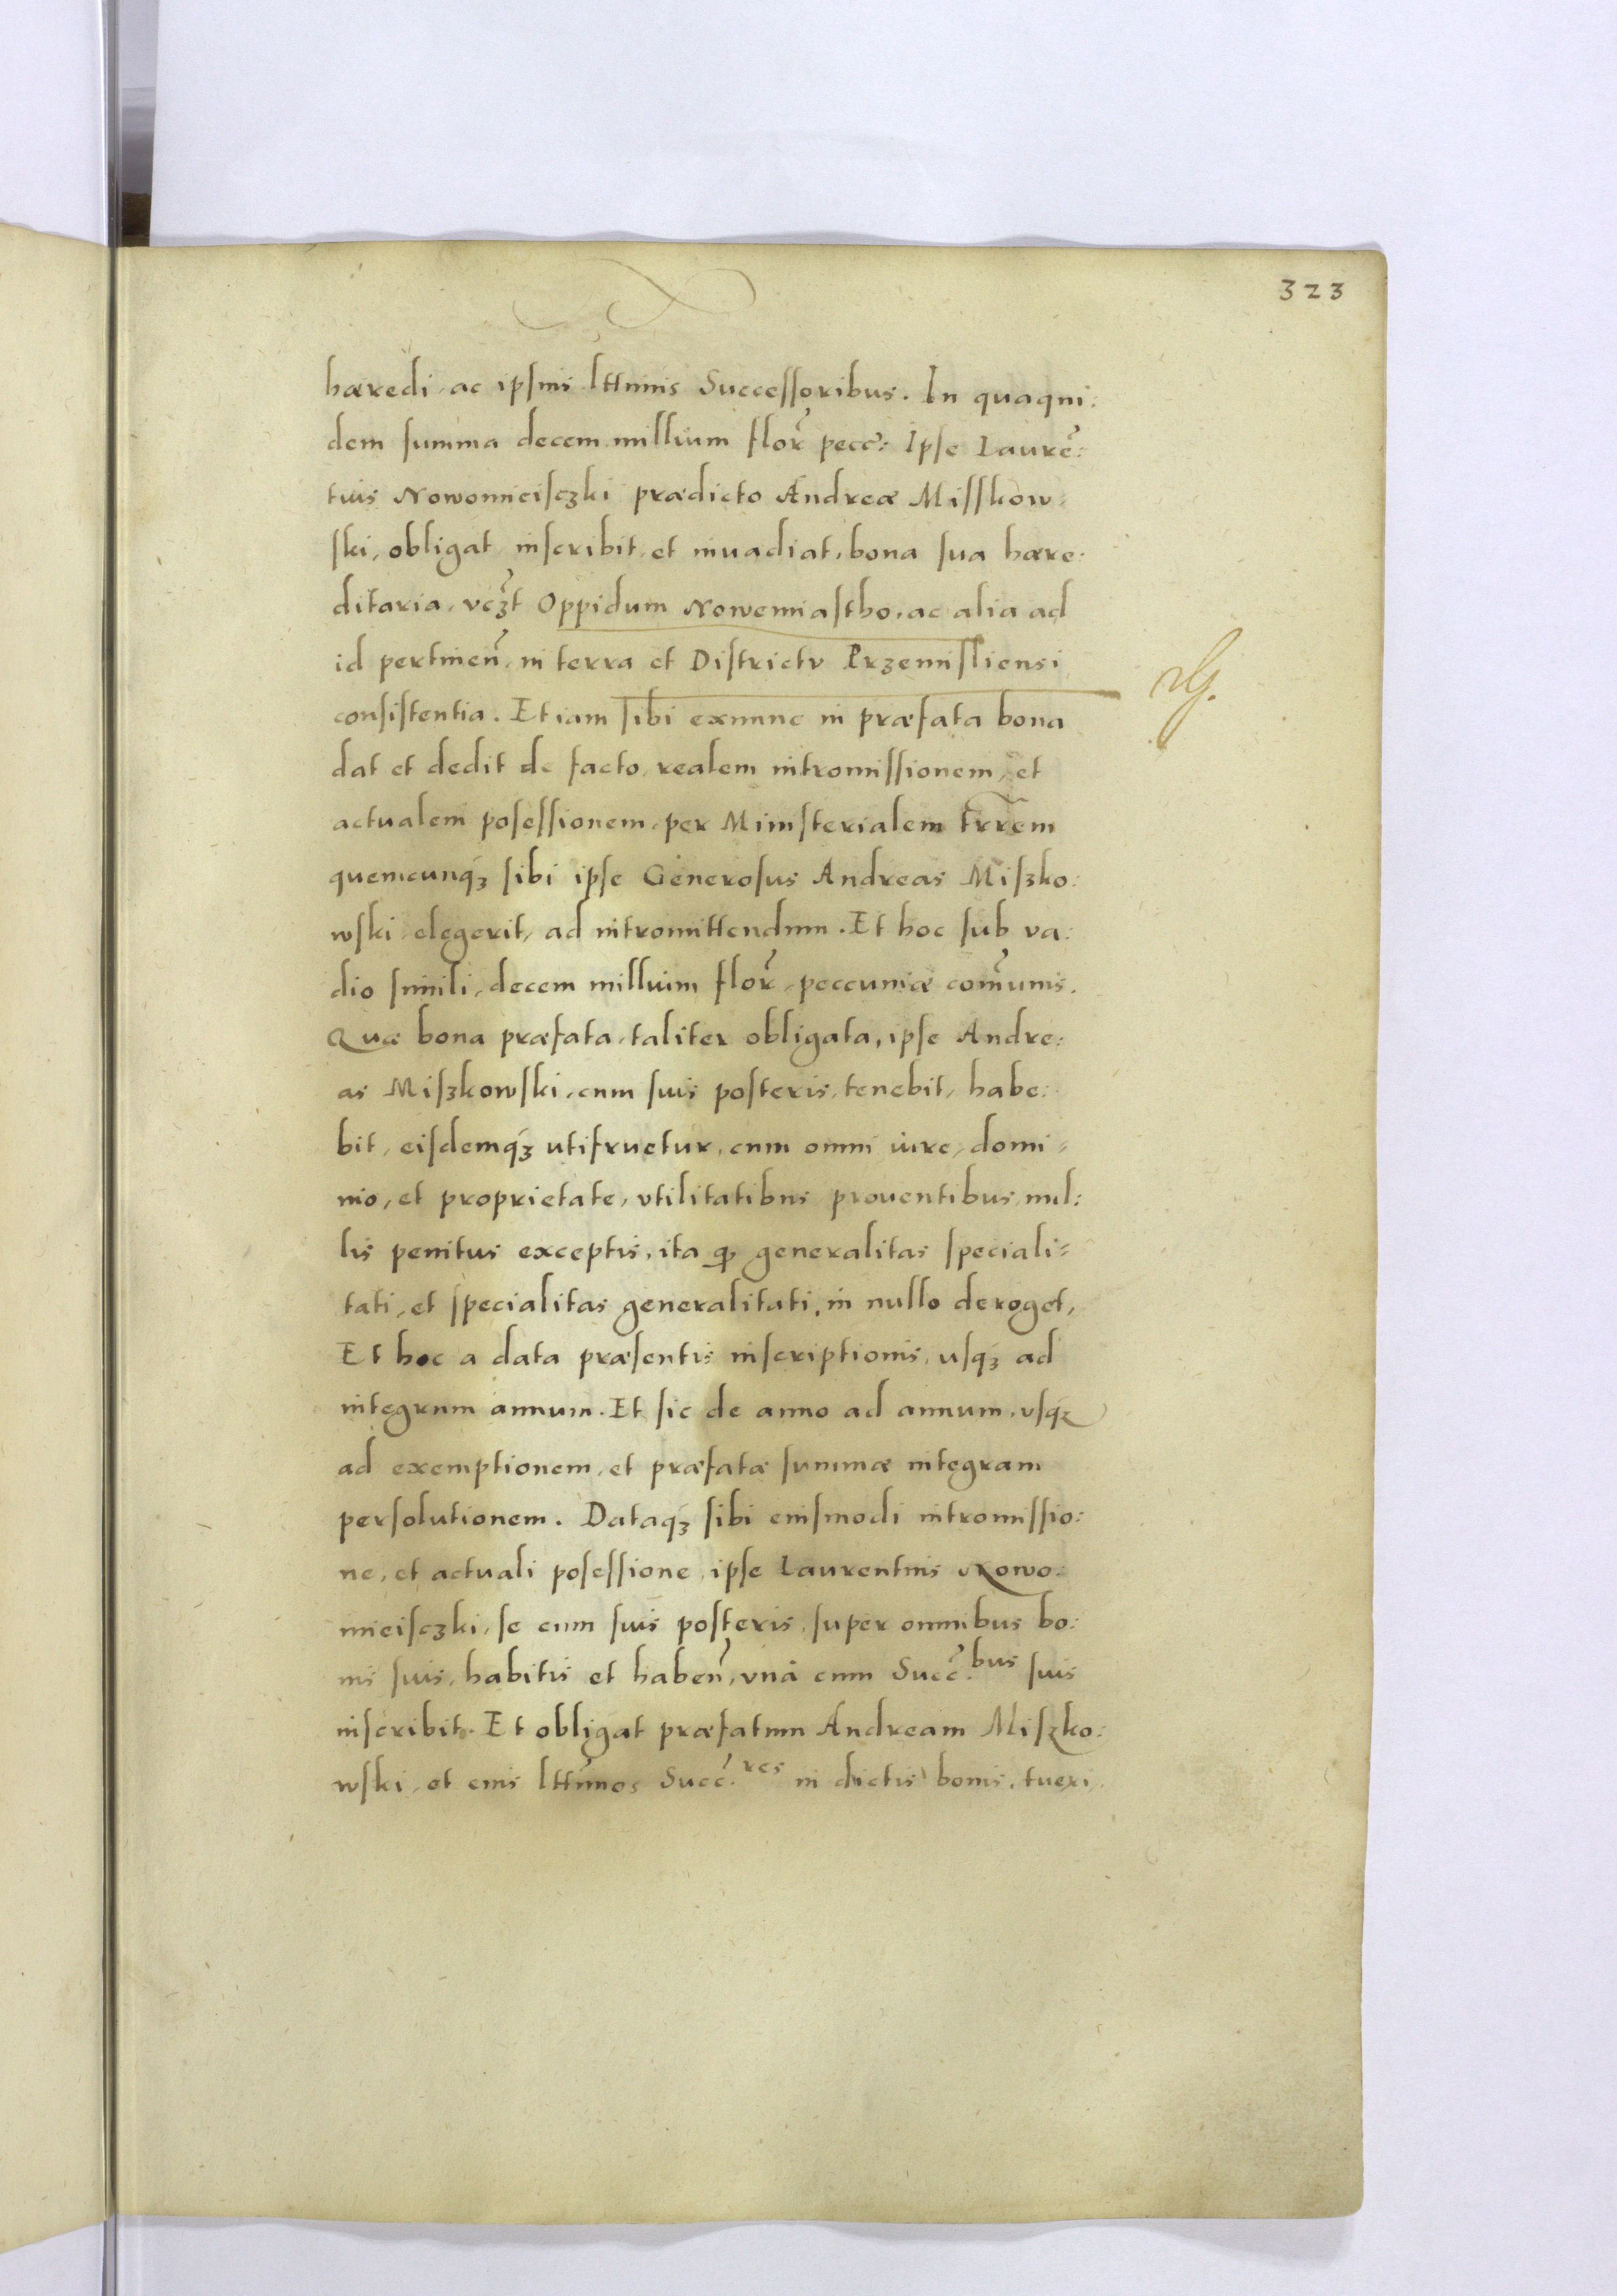 323
hæredi, ac ipsius lttimis Successoribus. In quaqui:
dem summa decem millium flor̃ pecc̃: Ipse Laurẽ:
tius Nowomieisczki prædicto Andreæ Misskow=
ski, obligat, inscribit, et inuadiat, bona sua hære:
ditaria, vcz̃t Oppidum Nowemiastho, ac alia ad
id pertineñ, in terra et Districtv Przemisliensi
consistentia. Etiam sibi exnunc in præfata bona
dat et dedit de facto, realem intromissionem, et
actualem posessionem, per Ministerialem trrẽm
quemcunqꝫ sibi ipse Generosus Andreas Miszko:
wski, elegerit, ad intromittendum. Et hoc sub va:
dio simili, decem millium flor̃, peccuniæ com̃unis.
Quæ bona præfata, taliter obligata, ipse Andre:
as Miszkowski, cum suis posteris, tenebit, habe:
bit, eisdemqꝫ utifruetur, cum omni iure, domi=
nio, et proprietate, vtilitatibus prouentibus, nul:
lis penitus exceptis, ita ꝙ generalitas speciali=
tati, et specialitas generalitati, in nullo deroget,
Et hoc a data præsentis inscriptionis, usqꝫ ad
integrum annum. Et sic de anno ad annum, vsqꝫ
ad exemptionem, et præfatæ summæ integram
persolutionem. Dataqꝫ sibi eiusmodi intromissio:
ne, et actuali posessione, ipse Laurentius Nowo:
mieisczki, se cum suis posteris, super omnibus bo:
nis suis, habitis et habeñ, vná cum Succ̃.bus suis
inscribit. Et obligat præfatum Andream Miszko:
wski, et eius ltt̃imos Succ̃.res in dictis bonis, tueri,